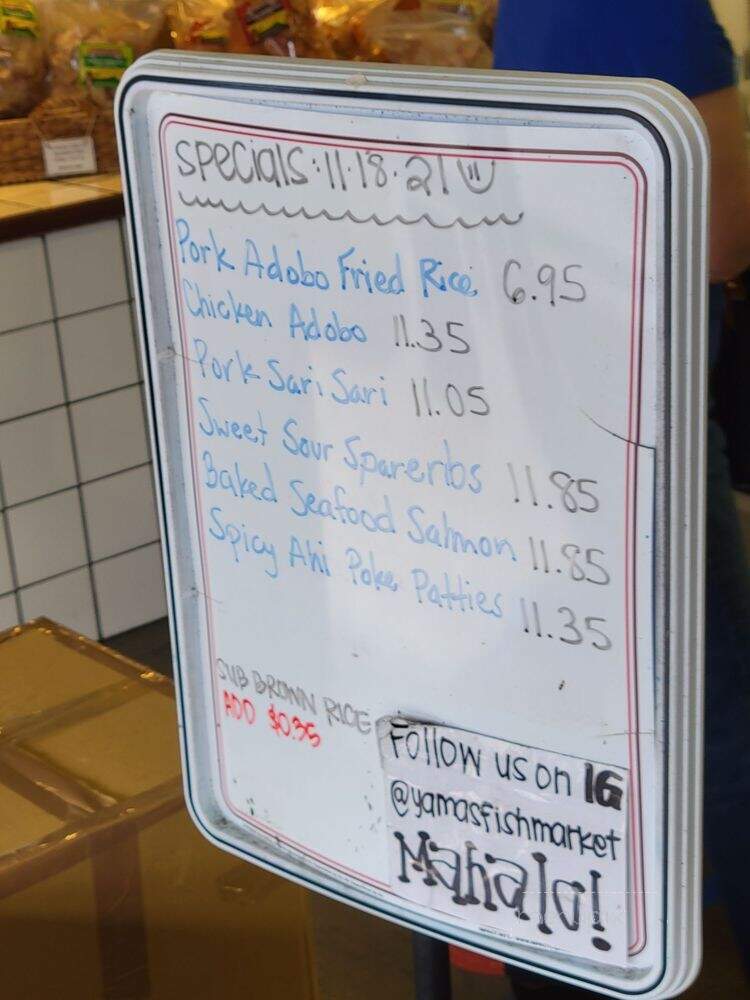 Specials: 11.18.21
Pork Adobo Fried Rice 6.95
Chicken Adobo 11.35
Pork Sari Sari 11.05
Sweet Sour Spareribs 11.85
Baked Seafood Salmon 11.85
Spicy Ahi Poke Patties 11.35
SUB BROWN RICE
ADD $0.35
Follow us on IG
@yamasfishmarket
Mahalo!